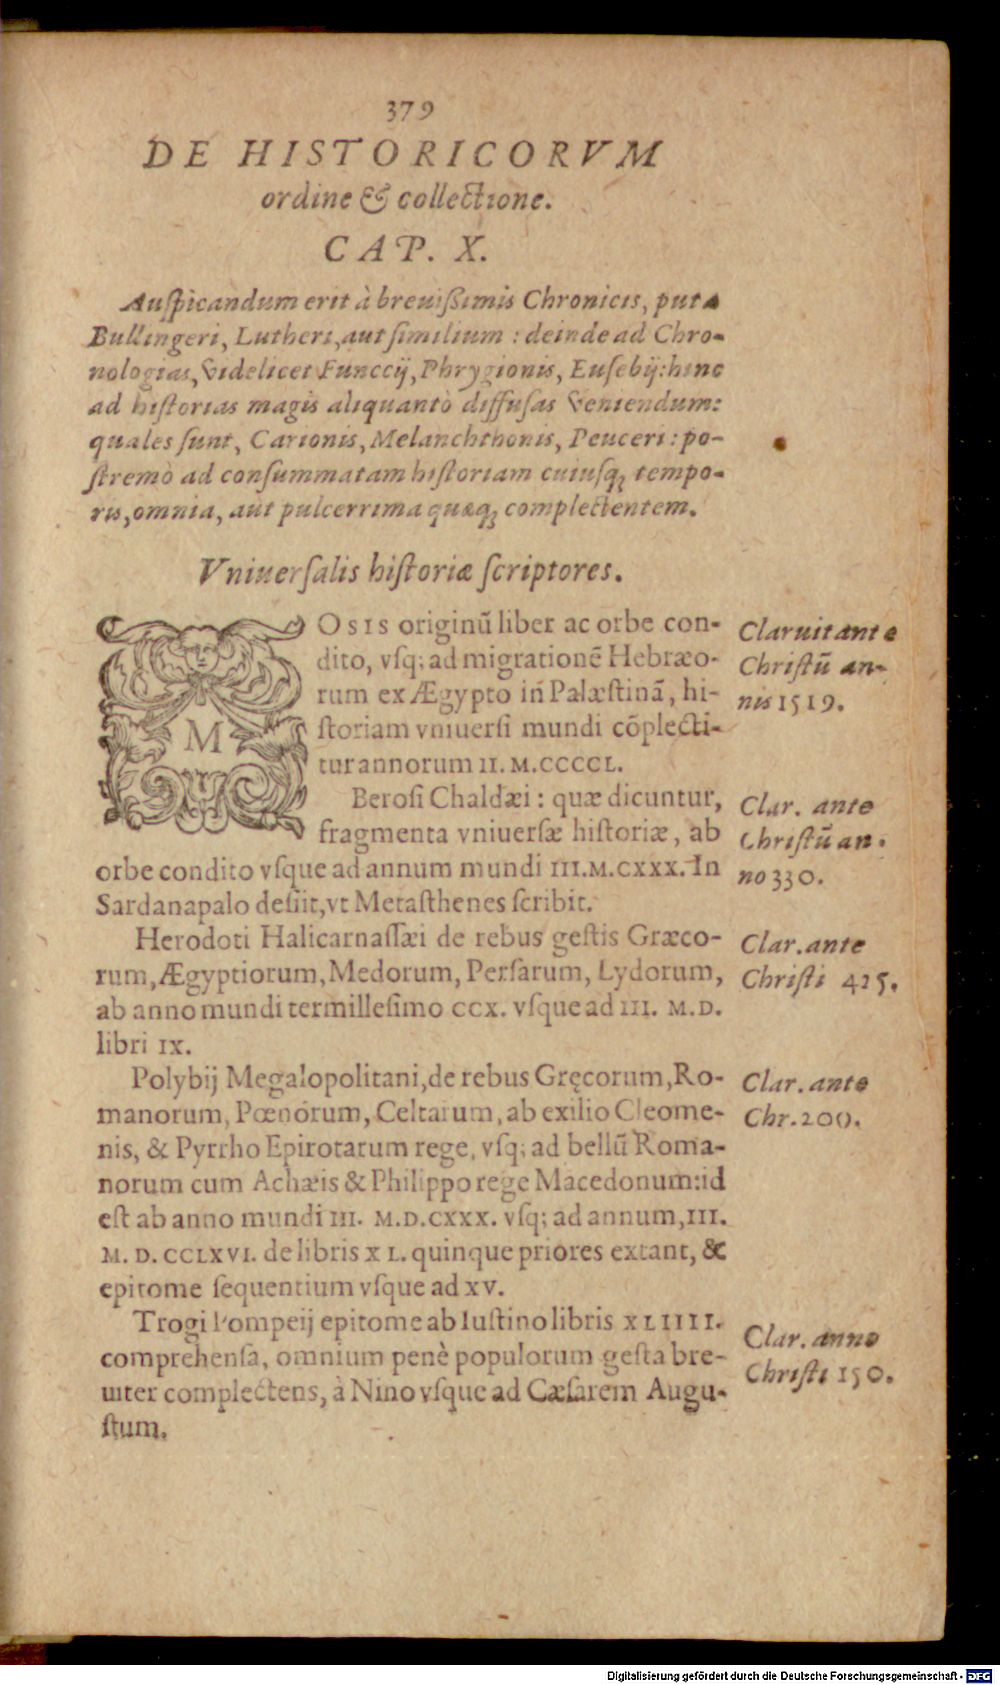 379
DE HISTORICORVM
ordine & collectione.
CAP. X.
Auſpicandum erit à breuiſsimis Chronicis, puta
Bullingeri, Lutheri, aut ſimilium : deinde ad Chro-
nologias, videlicet Funccij, Phrygionis, Euſebij: hinc
ad hiſtorias magis aliquantò diffuſas veniendum:
quales ſunt, Carionis, Melanchthonis, Peuceri : po-
ſtremò ad conſummatam hiſtoriam cuiuſq; tempo-
ris, omnia, aut pulcerrima quæq; complectentem.
Vniuerſalis hiſtoriæ ſcriptores.
MOSIS originũ liber ac orbe con-
dito, vſq; ad migrationẽ Hebræo-
rum ex Ægypto iñ Palæſtinã, hi-
ſtoriam vniuerſi mundi cõplecti-
tur annorum II. M.CCCCL.
Claruit ante
Chriſtũ an-
nis 1519.
Beroſi Chaldæi : quæ dicuntur,
fragmenta vniuerſæ hiſtoriæ, ab
orbe condito vſque ad annum mundi III.M.CXXX. In
Sardanapalo deſiit, vt Metaſthenes ſcribit.
Clar. ante
Chriſtũ an.
no 330.
Herodoti Halicarnaſſæi de rebus geſtis Græco-
rum, Ægyptiorum, Medorum, Perſarum, Lydorum,
ab anno mundi termilleſimo CCX. vſque ad III. M.D.
libri IX.
Clar. ante
Chriſti 425.
Polybij Megalopolitani, de rebus Gręcorum, Ro-
manorum, Pœnorum, Celtarum, ab exilio Cleome-
nis, & Pyrrho Epirotarum rege, vſq; ad bellũ Roma-
norum cum Achæis & Philippo rege Macedonum: id
eſt ab anno mundi III. M.D.CXXX. vſq; ad annum, III.
M. D. CCLXVI. de libris XL. quinque priores extant, &
epitome ſequentium vſque ad XV.
Clar. ante
Chr. 200.
Trogi Pompeij epitome ab Iuſtino libris XLIIII.
comprehenſa, omnium penè populorum geſta bre-
uiter complectens, à Nino vſque ad Cæſarem Augu-
ſtum.
Clar. anno
Chriſti 150.
Digitalisierung gefördert durch die Deutsche Forschungsgemeinschaft - DFG